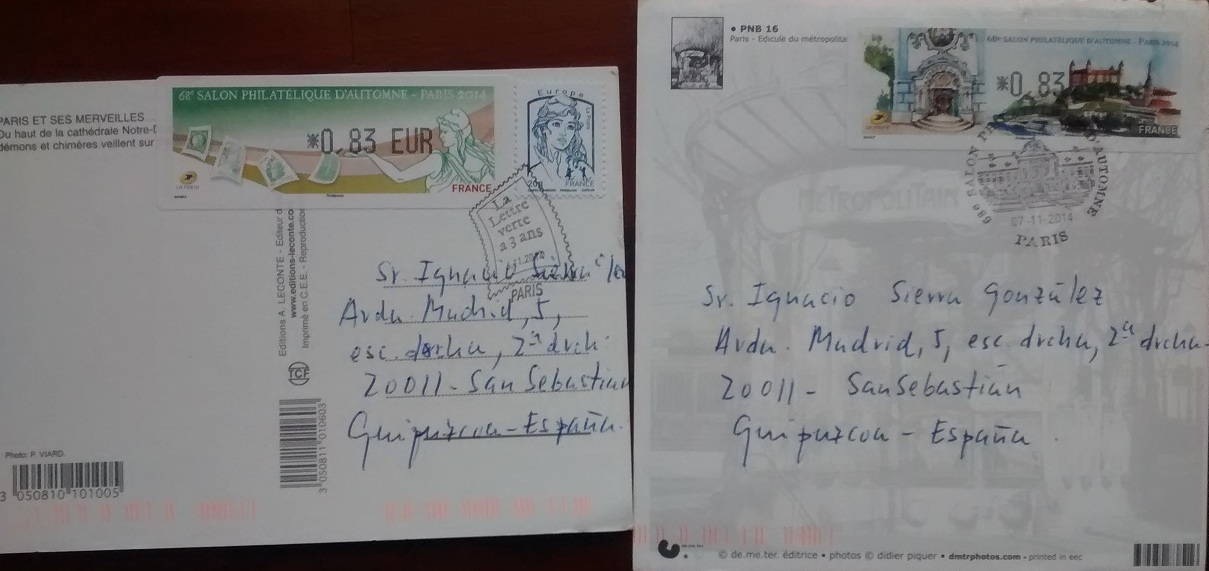 PARIS ET SES MERVEILLES
Du haut de la cathédrale Notre-D
démons et chimères veillent sur
68e SALON PHILATÉLIQUE D'AUTOMNE - PARIS 2014
*0,83 EUR
LA POSTE
FRANCE
Europe
20g
FRANCE
La
Lettre
verte
a 3 ans
PARIS
Editions A. LECONTE - Editeur d
www.editions-leconte.co
Imprimé en C.E.E. - Reproduction
TCF
3 050811 010603
Sr. Ignacio
Avda. Madrid, 5,
esc. drcha, 2ª drch.
20011 - San Sebastián
Guipuzcoa - España.
Photo: P. VIARD.
3 050810 101005
• PNB 16
Paris - Edicule du métropolita
68e SALON PHILATÉLIQUE D'AUTOMNE - PARIS 2014
*0,83
LA POSTE
FRANCE
68e SALON D'AUTOMNE
07-11-2014
PARIS
METROPOLITAIN
Sr. Ignacio Sierra González
Avda. Madrid, 5, esc. drcha, 2ª drcha.
20011 - San Sebastián
Guipuzcoa - España.
© de.me.ter. éditrice • photos © didier piquer • dmtrphotos.com - printed in eec